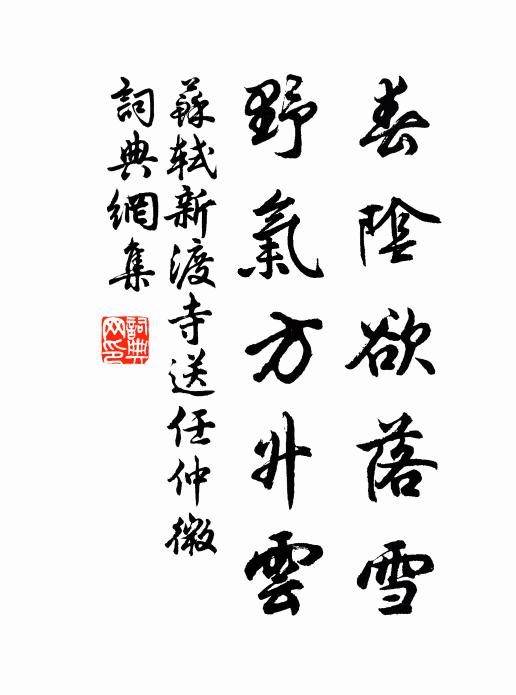 春陰欲落雪
野氣方升雲
蘇軾新渡寺送任仲微
詞典網集
詞典網印